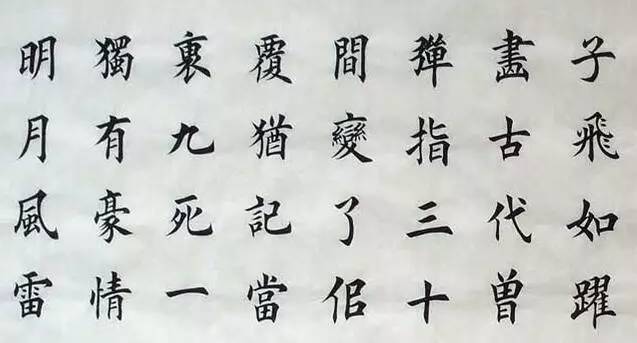 子飛如躍
畫古代曾
彈指三十
間變了佀
覆猶記當
裏九死一
獨有豪情
明月風雷